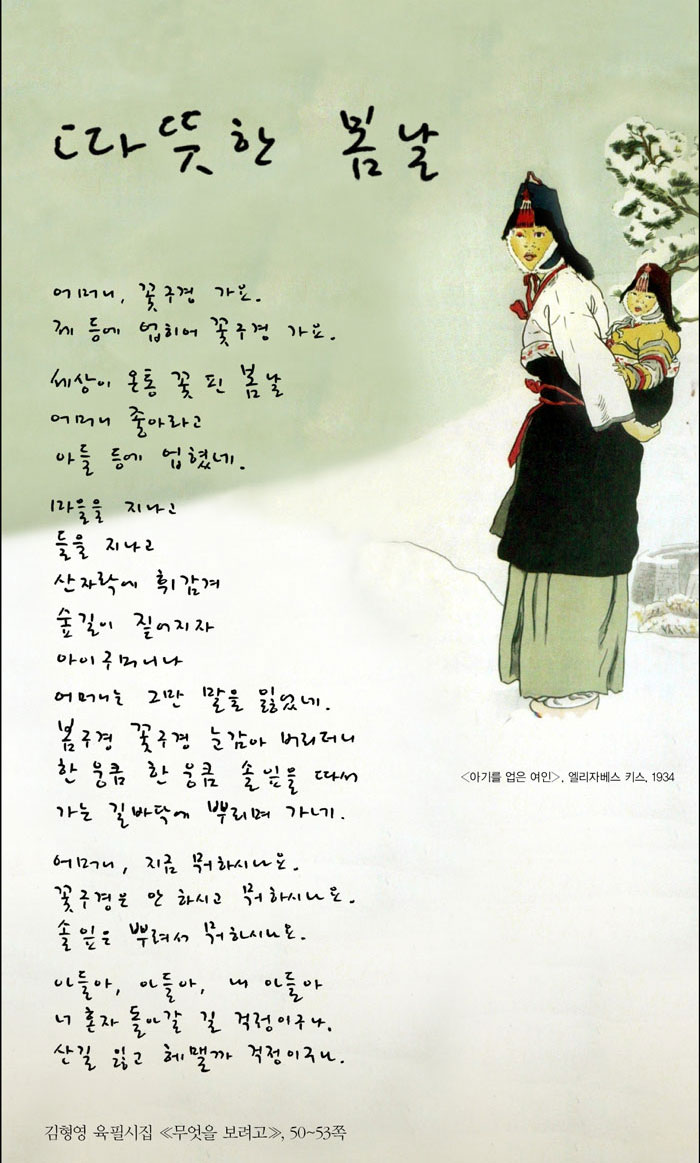 따뜻한 봄날
어머니, 꽃구경 가요.
제 등에 업히어 꽃구경 가요.
세상이 온통 꽃 핀 봄날
어머니 좋아라고
아들 등에 업혔네.
마을을 지나고
들을 지나고
산자락에 휘감겨
숲길이 짙어지자
아이구머니나
어머니는 그만 말을 잃었네.
봄구경 꽃구경 눈감아 버리더니
한 웅큼 한 웅큼 솔잎을 따서
가는 길바닥에 뿌리며 가네.
어머니, 지금 뭐하시나요.
꽃구경은 안 하시고 뭐하시나요.
솔잎은 뿌려서 뭐하시나요.
아들아, 아들아, 내 아들아
너 혼자 돌아갈 길 걱정이구나.
산길 잃고 헤맬까 걱정이구나.
<아기를 업은 여인>, 엘리자베스 키스, 1934
김형영 육필시집 ≪무엇을 보려고≫, 50~53쪽